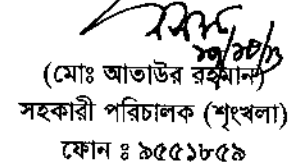 (মোঃ আতাউর রহমান)
সহকারী পরিচালক (শৃংখলা)
ফোন ঃ ৯৫৫১৮৫৯